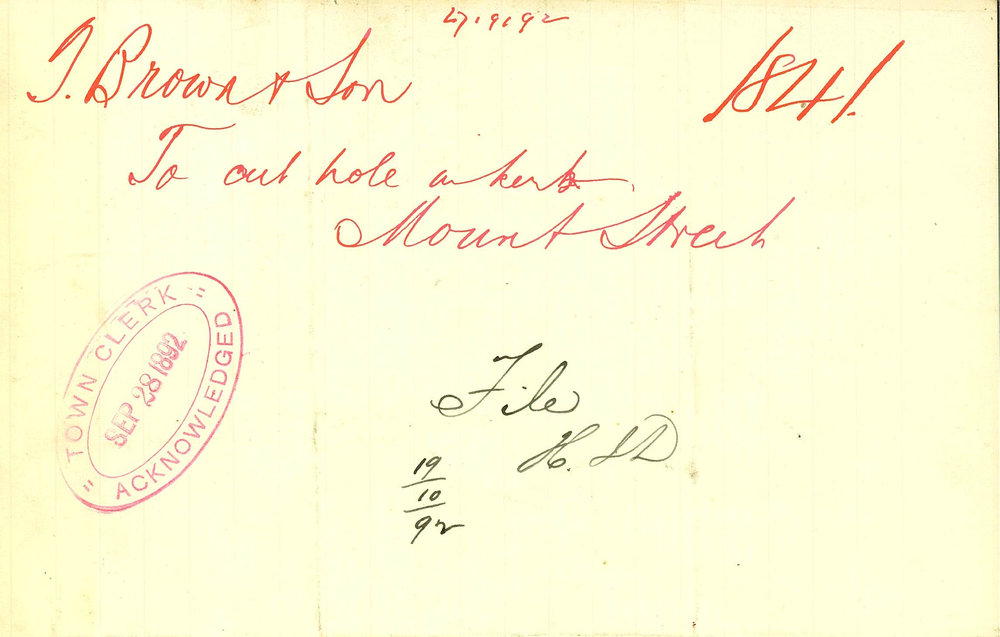 27.9.92
J. Brown & Son
1841.
To cut hole in kerb
Mount Street
TOWN CLERK
SEP 28 1892
ACKNOWLEDGED
File
H.
19
10
92